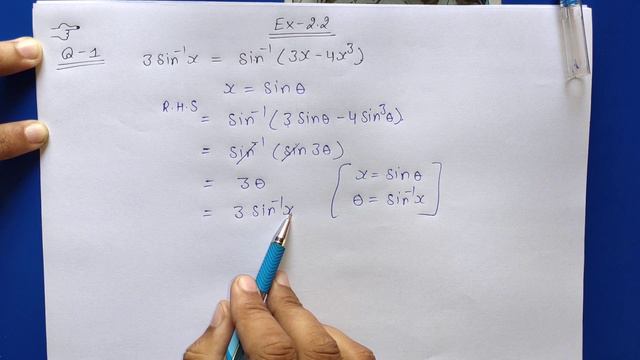 Ex-2.2
Q-1 3 sin⁻¹x = sin⁻¹(3x - 4x³)
x = sinθ
R.H.S
= sin⁻¹(3 sinθ - 4 sin³θ)
= sin⁻¹(sin3θ)
= 3θ [x = sinθ
= 3 sin⁻¹x θ = sin⁻¹x]